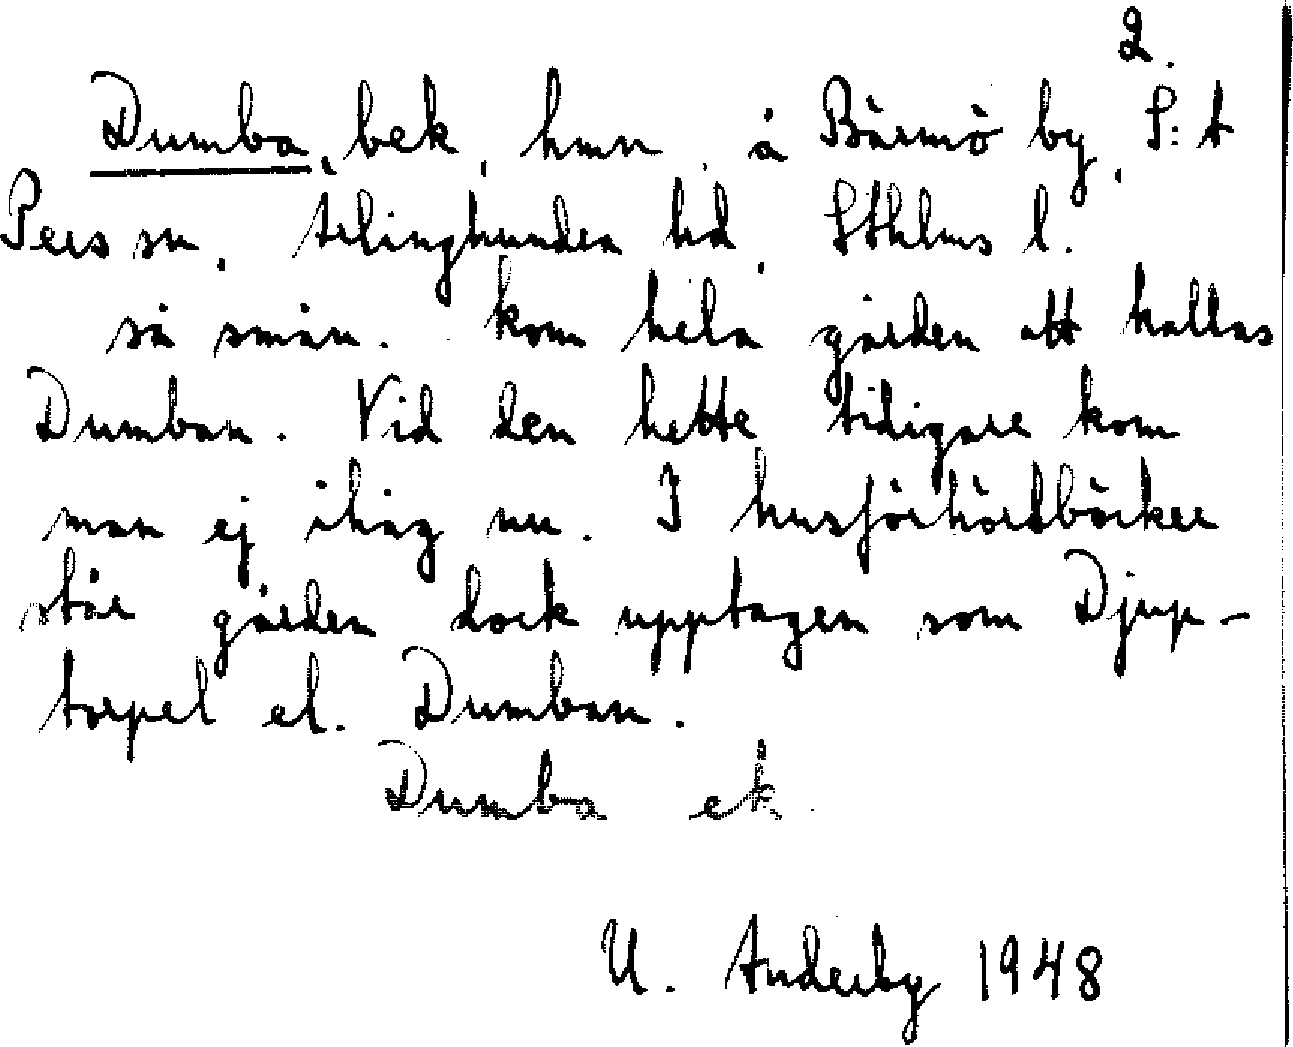 2.
Dumba, bek, hmn, å Bärmö by, S:t
Pers sn, Ärlinghundra hd, Sthlms l.
så smån. kom hela gården att kallas
Dumban. Vid den hette tidigare kom
man ej ihåg nu. I husförhörsböcker
står gården dock upptagen som Djup-
torpel el. Dumban.
Dumba ek.
U. Anderby 1948